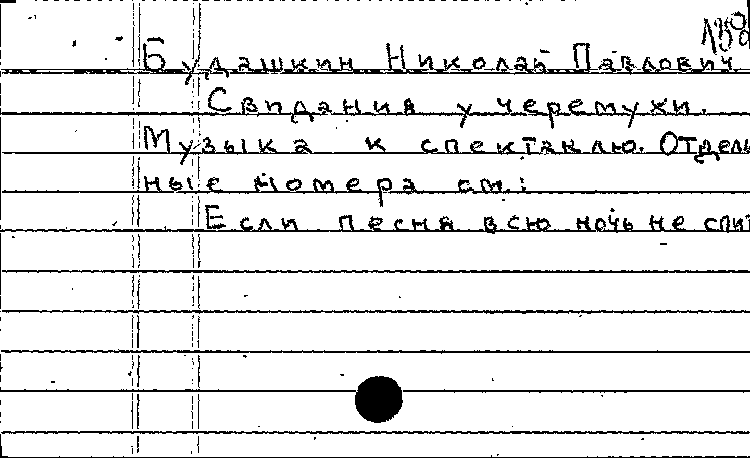 138
Будашкин Николай Павлович
Свидания у черемухи.
Музыка к спектаклю. Отдель
ные номера см.:
Если песня всю ночь не спит